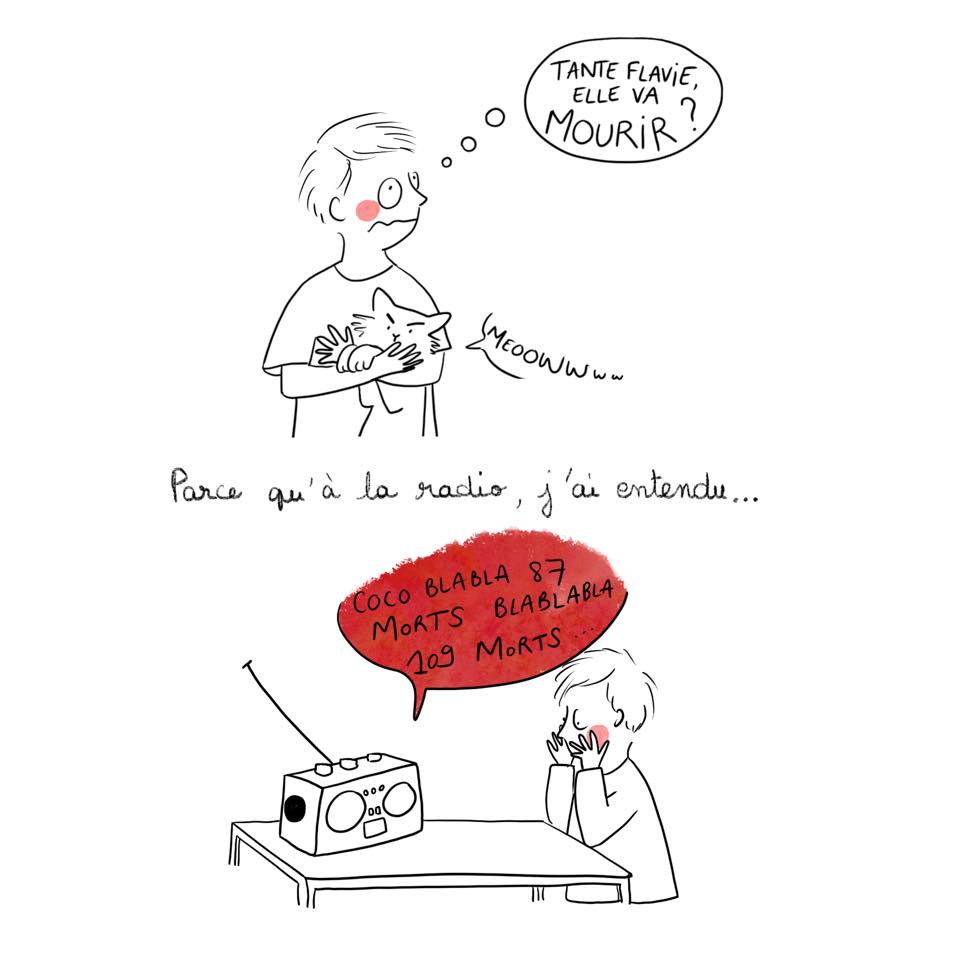 TANTE FLAVIE,
ELLE VA
MOURIR ?
MEOOWWww
Parce qu'à la radio, j'ai entendu...
COCO BLABLA 87
MORTS BLABLABLA
109 MORTS ...